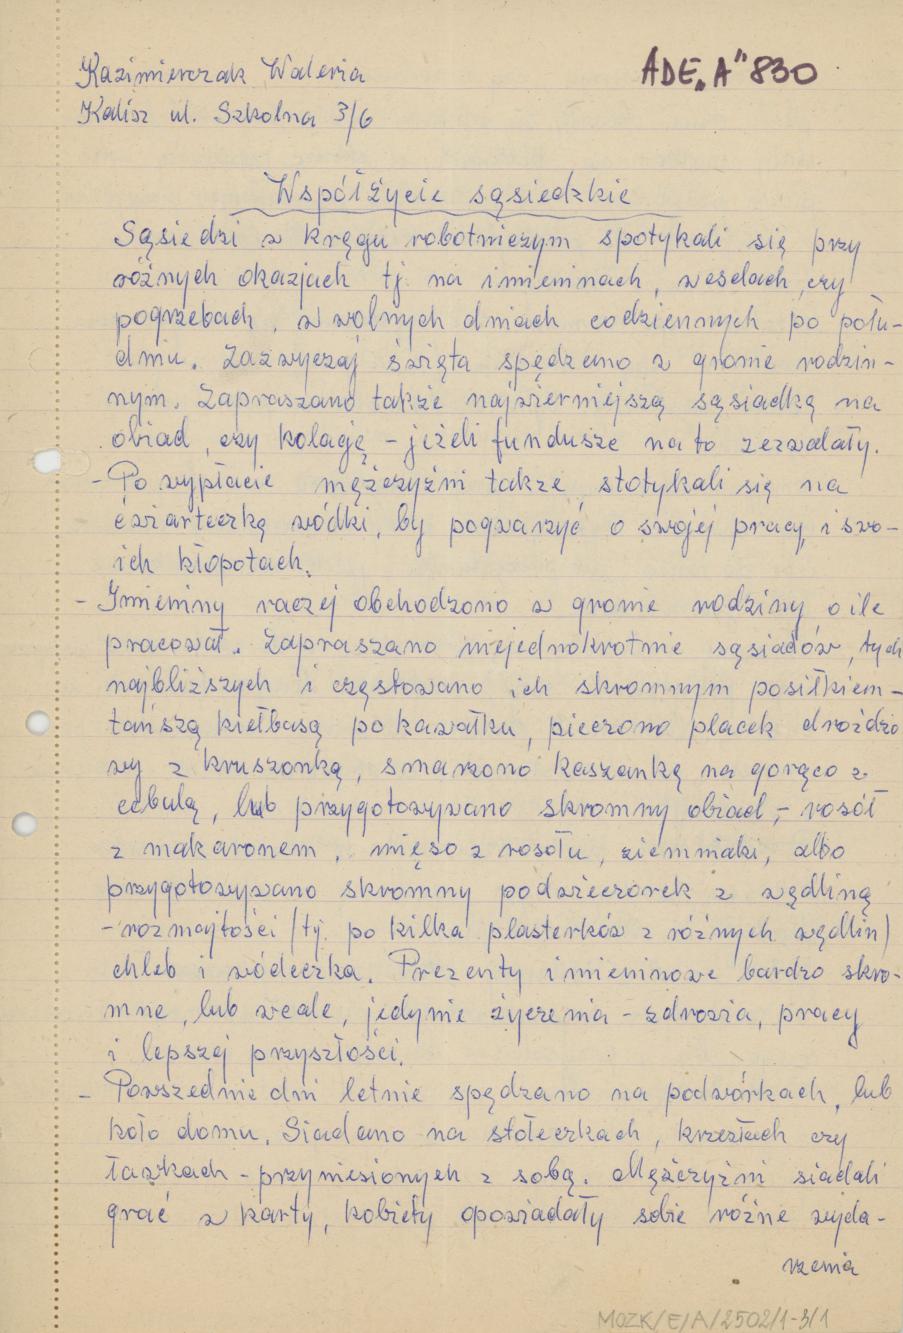 Kazimierczak Waleria
ADE "A" 830
Kalisz ul. Szkolna 3/6
Współżycie sąsiedzkie
Sąsiedzi w kręgu robotniczym spotykali się przy
różnych okazjach tj. na imieninach, weselach, czy
pogrzebach, w wolnych dniach codziennych po połu-
dniu. Zazwyczaj święta spędzano w gronie rodzin-
nym. Zapraszano także najwierniejszą sąsiadką na
obiad, czy kolację - jeżeli fundusze na to zezwalały.
- Po wypłacie mężczyźni także stotykali się na
ćwiarteczką wódki, by pogwarzyć o swojej pracy i swo-
ich kłopotach.
- Imieniny raczej obchodzono w gronie rodziny, o ile
pracował. Zapraszano niejednokrotnie sąsiadów, tych
najbliższych i częstowano ich skromnym posiłkiem -
tańszą kiełbasą po kawałku, pieczono placek drożdżo
wy z kruszonką, smażono kaszanką na gorąco z
cebulą, lub przygotowywano skromny obiad, - rosół
z makaronem, mięso z rosołu, ziemniaki, albo
przygotowywano skromny podwieczorek z wędliną
- rozmajtości /tj. po kilka plasterków z różnych wędlin/
chleb i wódeczka. Prezenty imieninowe bardzo skro-
mne, lub wcale, jedynie życzenia - zdrowia, pracy
i lepszej przyszłości.
- Powszednie dni letnie spędzano na podwórkach, lub
koło domu. Siadano na stołeczkach, krzesłach czy
ławkach - przyniesionych z sobą. Mężczyźni siadali
grać w karty, kobiety opowiadały sobie różne wyda-
rzenia
MOZK/E/A/2502/1-3/1